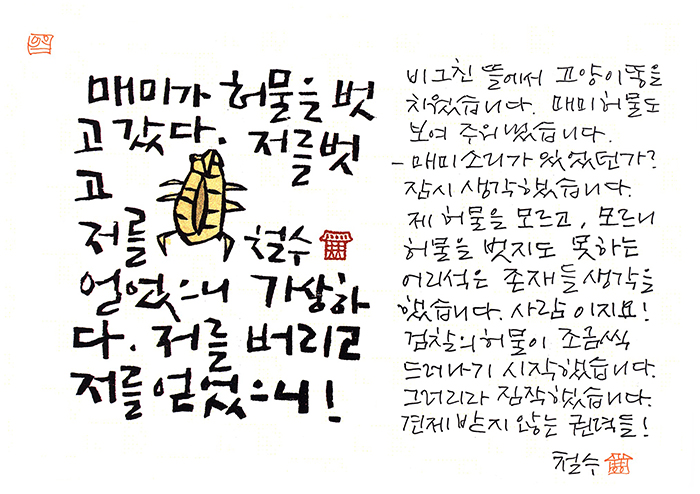 매미가 허물을 벗
고 갔다. 저를 벗
고
저를
철수
얻었으니 가상하
다. 저를 버리고
저를 얻었으니!
비그친 뜰에서 고양이똥을
치웠습니다. 매미허물도
보여 주워 냈습니다.
- 매미소리가 있었던가?
잠시 생각했습니다.
제 허물을 모르고, 모르니
허물을 벗지도 못하는
어리석은 존재들 생각을
했습니다. 사람이지요!
검찰의 허물이 조금씩
드러나기 시작했습니다.
그러리라 짐작했습니다.
견제 받지 않는 권력들!
철수